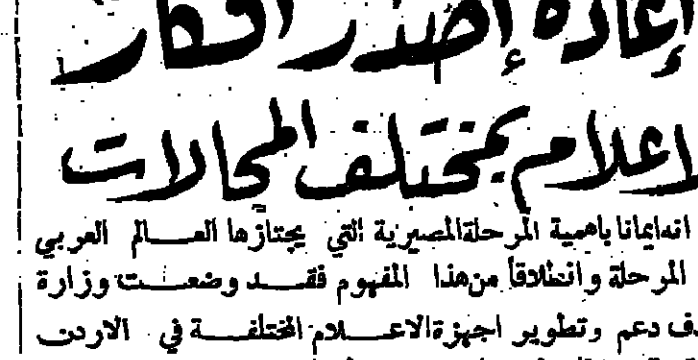 إعادة إصدار افكار
لاعلام بمختلف المجالات
انه ايمانا باهمية المرحلة المصيرية التي يجتازها العالم العربي
المرحلة وانطلاقاً من هذا المفهوم فقد وضعت وزارة
دف دعم وتطوير اجهزة الاعلام المختلفة في الاردن